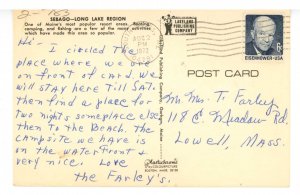 2-163
SEBAGO-LONG LAKE REGION
One of Maine's most popular resort areas. Boating,
camping, and fishing are a few of the many activities
which have made this area so popular.
Hi - I circled the
place where we are
on front of card. We
will stay here till Sat.
then find a place for
two nights someplace else
then to the Beach. The
campsite we have is
on the waterfront &
very nice. Love
The Farley's.
PUBLISHING
COMPANY
AUG
PM
EISENHOWER·USA
6c
POST CARD
Mr. Mrs. T. Farley
118 C. Meadow Rd.
Lowell, Mass.